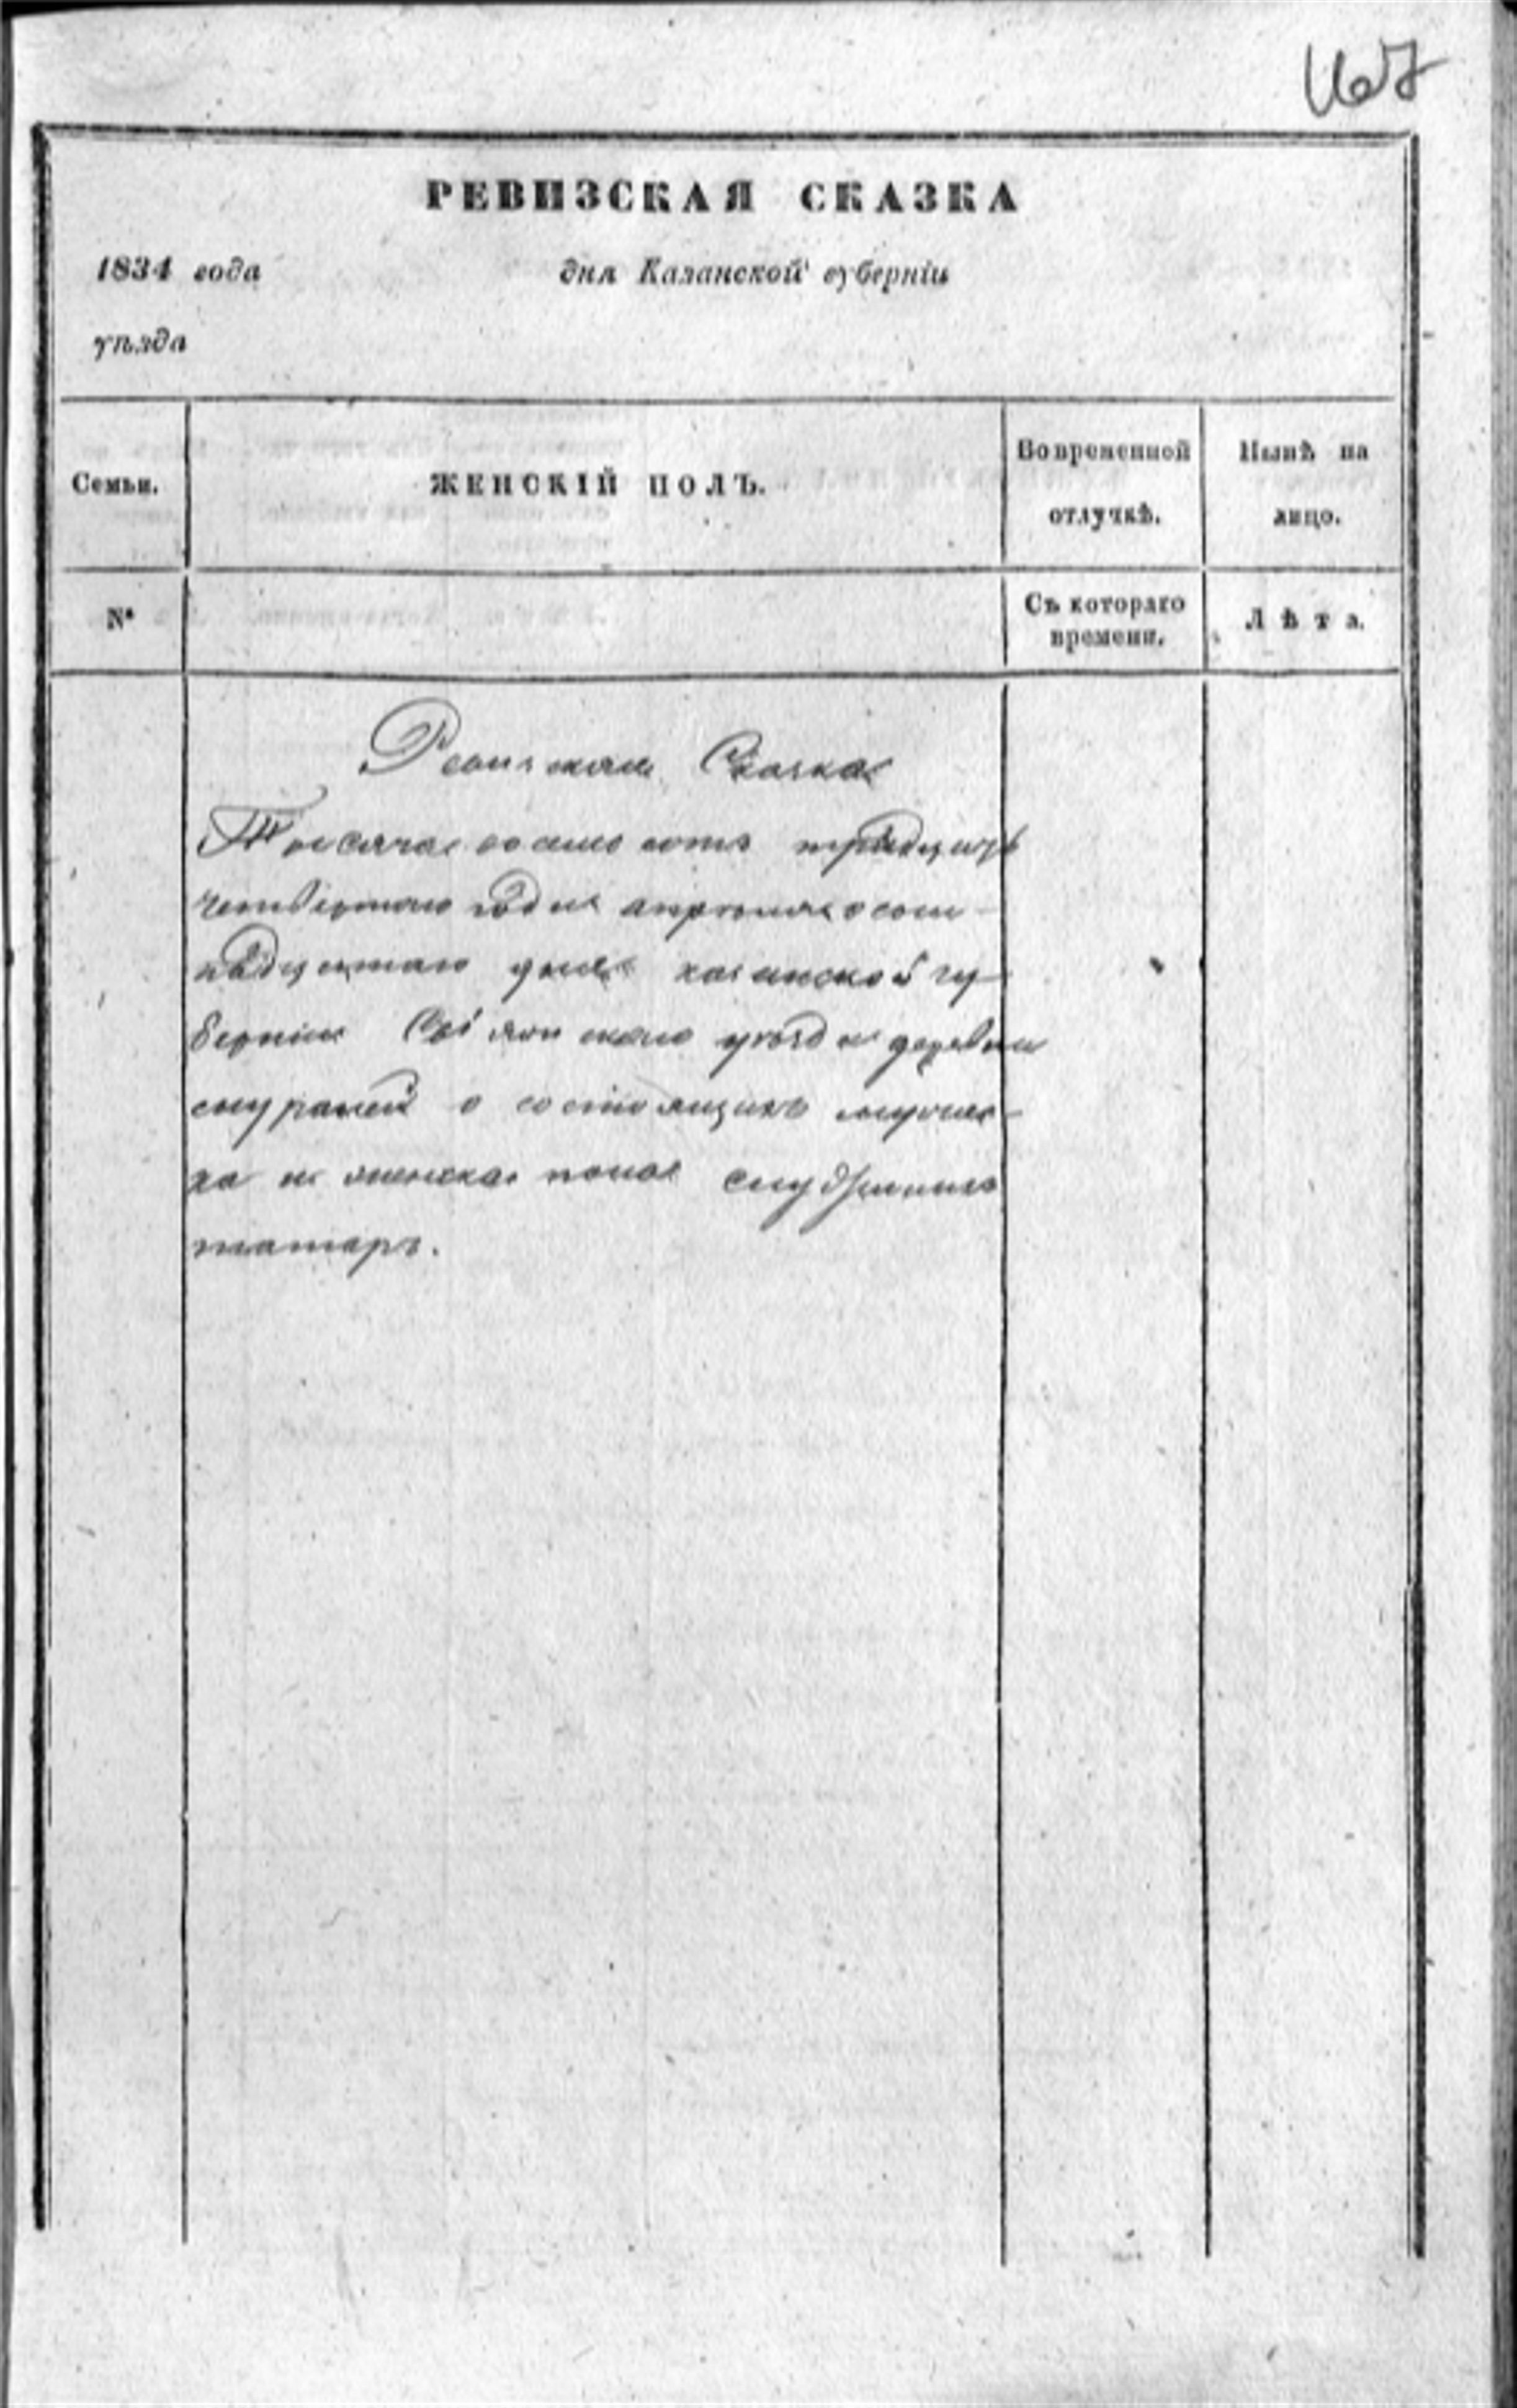 167
РЕВИЗСКАЯ СКАЗКА
1834 года дня Казанской губерніи
уѣзда
Семьи. ЖЕНСКІЙ ПОЛЪ. Во временной отлучкѣ. Нынѣ на лицо.
№ Съ котораго времени. Лѣта.
Ревизская Сказка
Тысяча восемь сотъ тридцать
четвертаго года апреля осем-
надцатаго дня казанской гу-
берніи Свіяжскаго уезда деревни
о состоящихъ мужес-
ка и женска пола служилыхъ
татаръ.